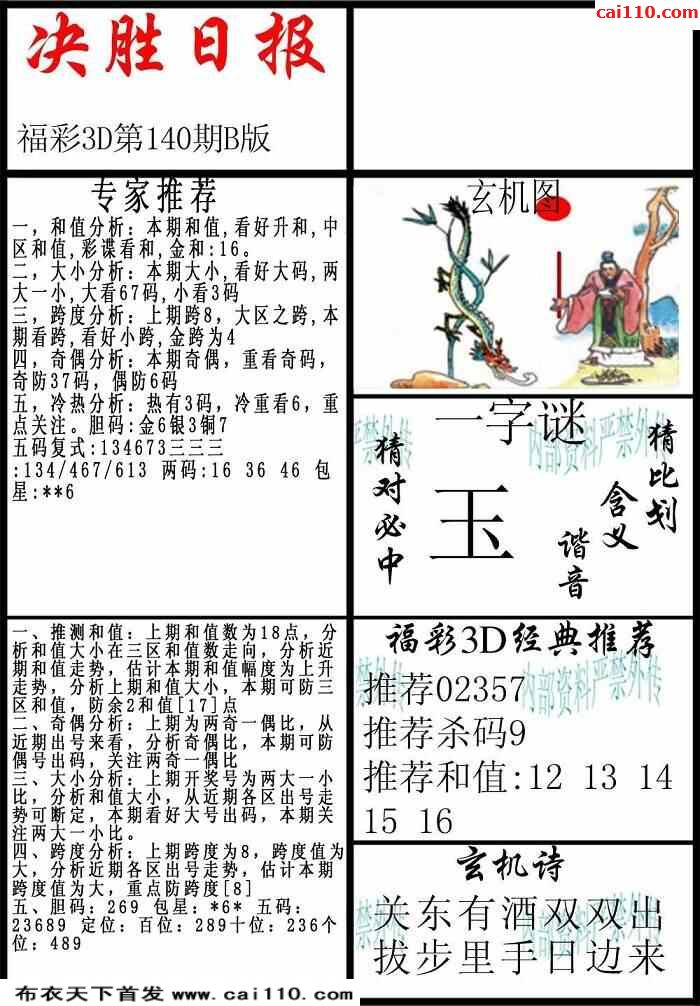 cai110.com
决胜日报
福彩3D第140期B版
专家推荐
一，和值分析：本期和值,看好升和,中
区和值,彩谍看和,金和:16。
二，大小分析：本期大小,看好大码,两
大一小,大看67码,小看3码
三，跨度分析：上期跨8，大区之跨,本
期看跨,看好小跨,金跨为4
四，奇偶分析：本期奇偶，重看奇码，
奇防37码，偶防6码
五，冷热分析：热有3码，冷重看6，重
点关注。胆码:金6银3铜7
五码复式:134673三三三
:134/467/613 两码:16 36 46 包
星:**6
玄机图
一字谜
内部资料严禁外传
猜对必中
玉
猜比划
含义
谐音
一、推测和值：上期和值数为18点，分
析和值大小在三区和值数走向，分析近
期和值走势，估计本期和值幅度为上升
走势，分析上期和值大小，本期可防三
区和值，防余2和值[17]点
二、奇偶分析：上期为两奇一偶比，从
近期出号来看，分析奇偶比，本期可防
偶号出码，关注两奇一偶比
三、大小分析：上期开奖号为两大一小
比，分析和值大小，从近期各区出号走
势可断定，本期看好大号出码，本期关
注两大一小比。
四、跨度分析：上期跨度为8，跨度值为
大，分析近期各区出号走势，估计本期
跨度值为大，重点防跨度[8]
五、胆码：269 包星：*6* 五码：
23689 定位：百位：289十位：236个
位：489
福彩3D经典推荐
内部资料严禁外传
推荐02357
推荐杀码9
推荐和值:12 13 14
15 16
玄机诗
关东有酒双双出
拔步里手日边来
布衣天下首发 www.cai110.com